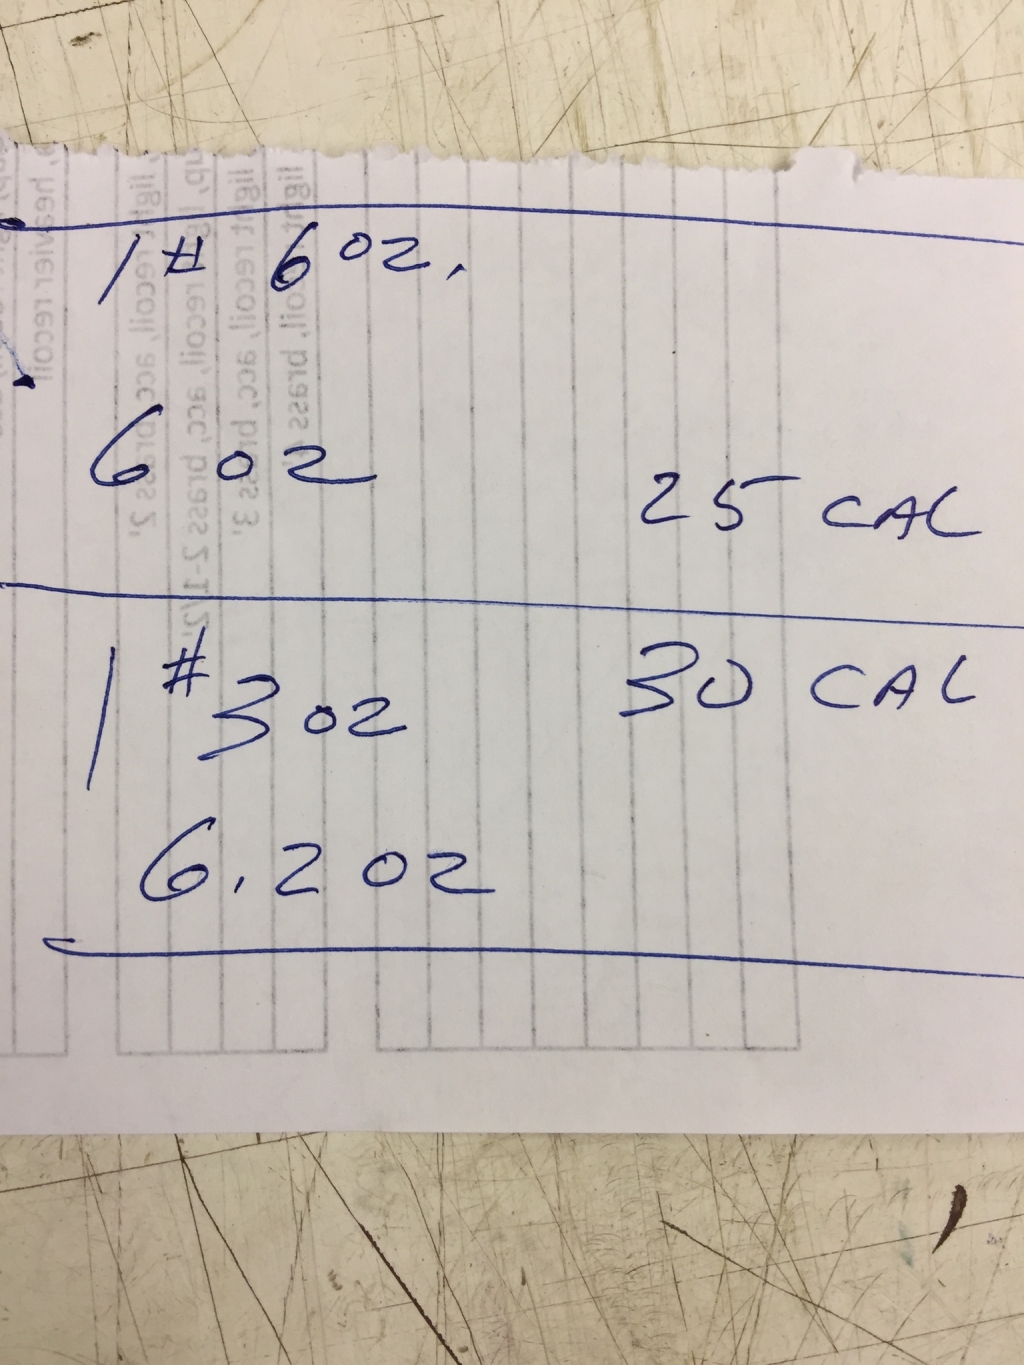 1 # 6 oz.
6 oz
25 CAL
1 # 3 oz 30 CAL
6.2 oz
heavier recoil
light recoil, acc, brass 2'
recoil, acc, brass 2-1/2'
light recoil, acc, brass 3'